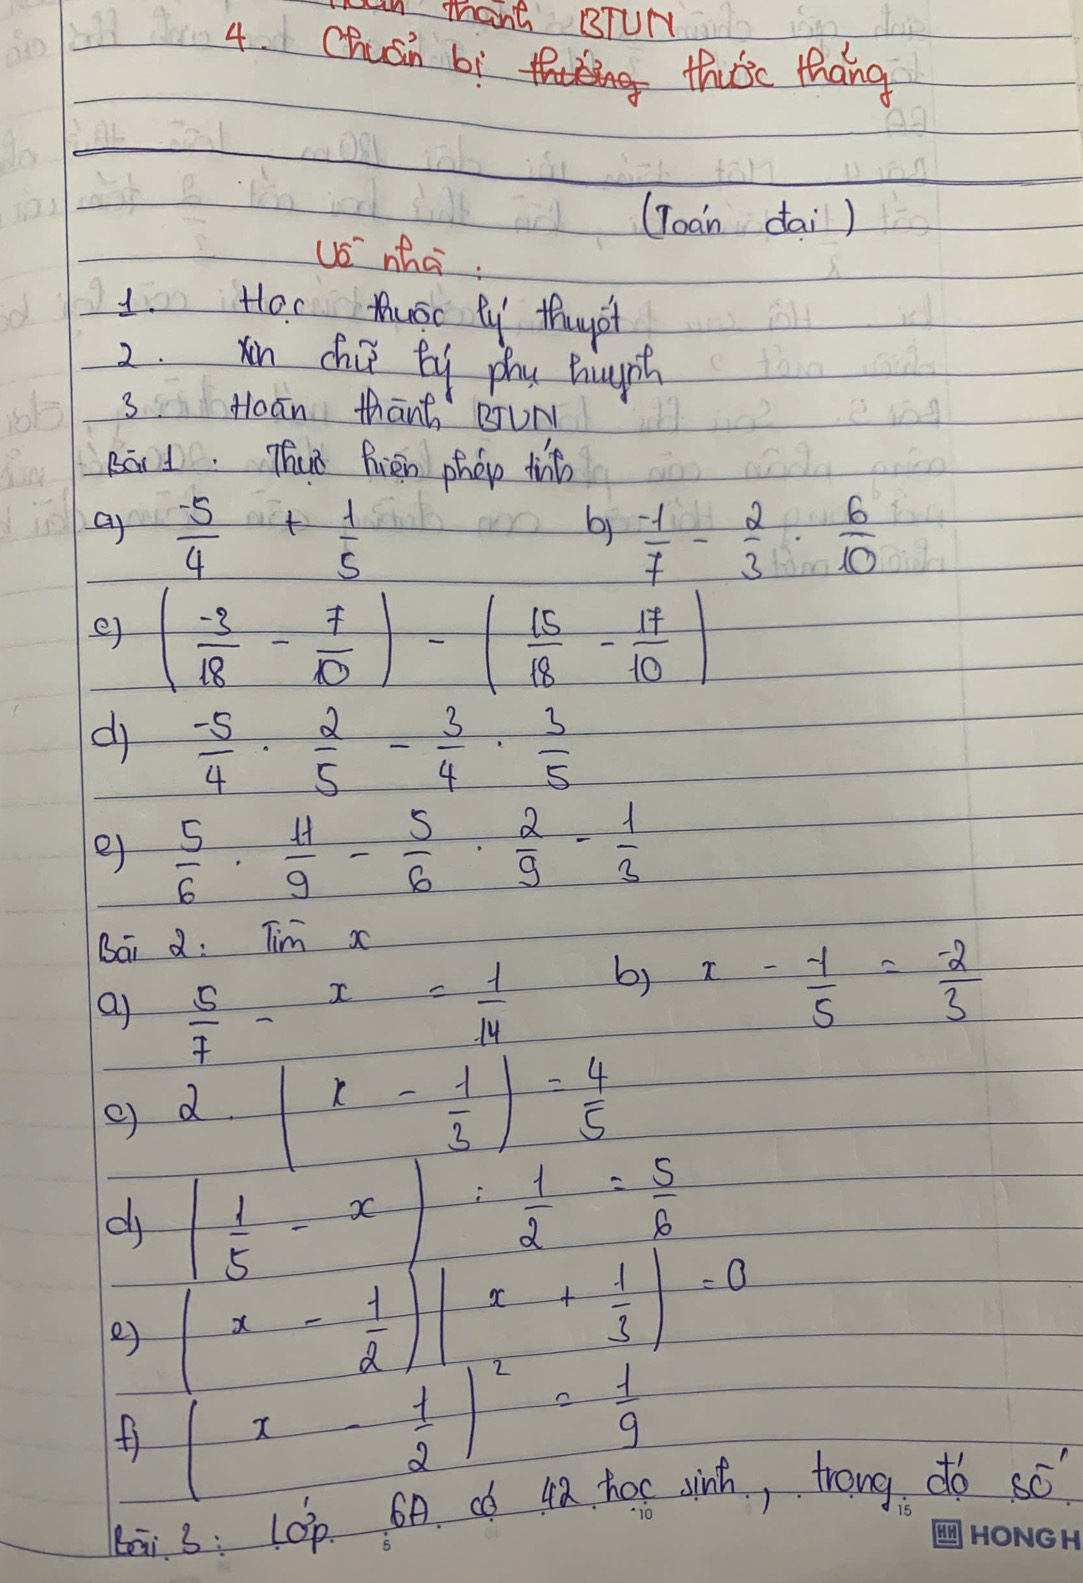 Hoàn thành BTVN
4. Chuẩn bị thường thước thẳng
(Toán đại)
Về nhà:
1. Học thuộc lý thuyết
2. Xin chữ ký phụ huynh
3. Hoàn thành BTVN
Bài 1: Thực hiện phép tính
a) -5/4 + 1/5 b) -1/7 - 2/3 . 6/10
c) (-3/18 - 7/10) - (15/18 - 17/10)
d) -5/4 . 2/5 - 3/4 . 3/5
e) 5/6 . 11/9 - 5/6 . 2/9 - 1/3
Bài 2: Tìm x
a) 5/7 - x = 1/14 b) x - -1/5 = -2/3
c) 2 . (x - 1/3) = 4/5
d) (1/5 - x) : 1/2 = 5/6
e) (x - 1/2)(x + 1/3) = 0
f) (x - 1/2)² = 1/9
Bài 3: Lớp 6A có 42 học sinh, trong đó số
5 10 15
HH HONG H